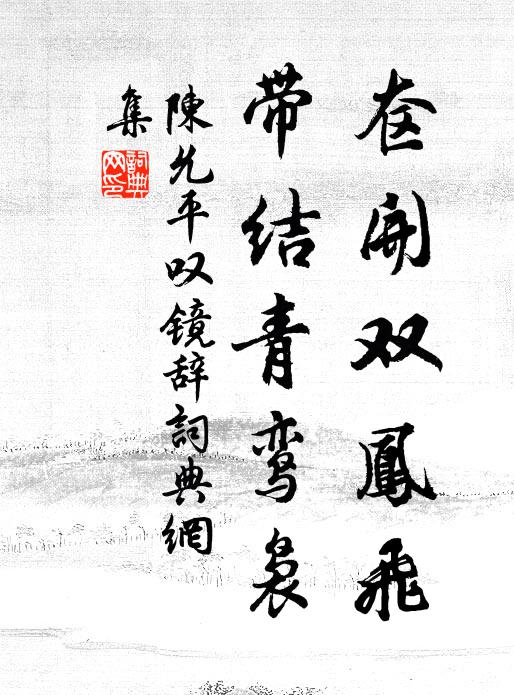 奁開双鳳飛
带结青鸾袅
陳允平叹镜辞詞典網
集
詞典网印